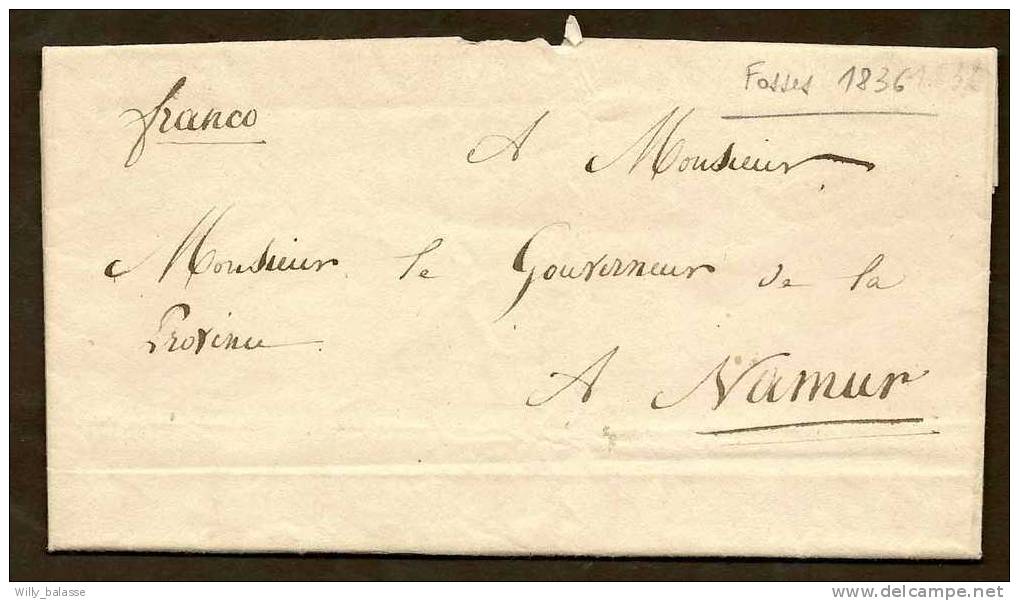 Fosses 1836
franco
A Monsieur
Monsieur le Gouverneur de la
Province
A Namur
Willy_balasse
delcampe.net